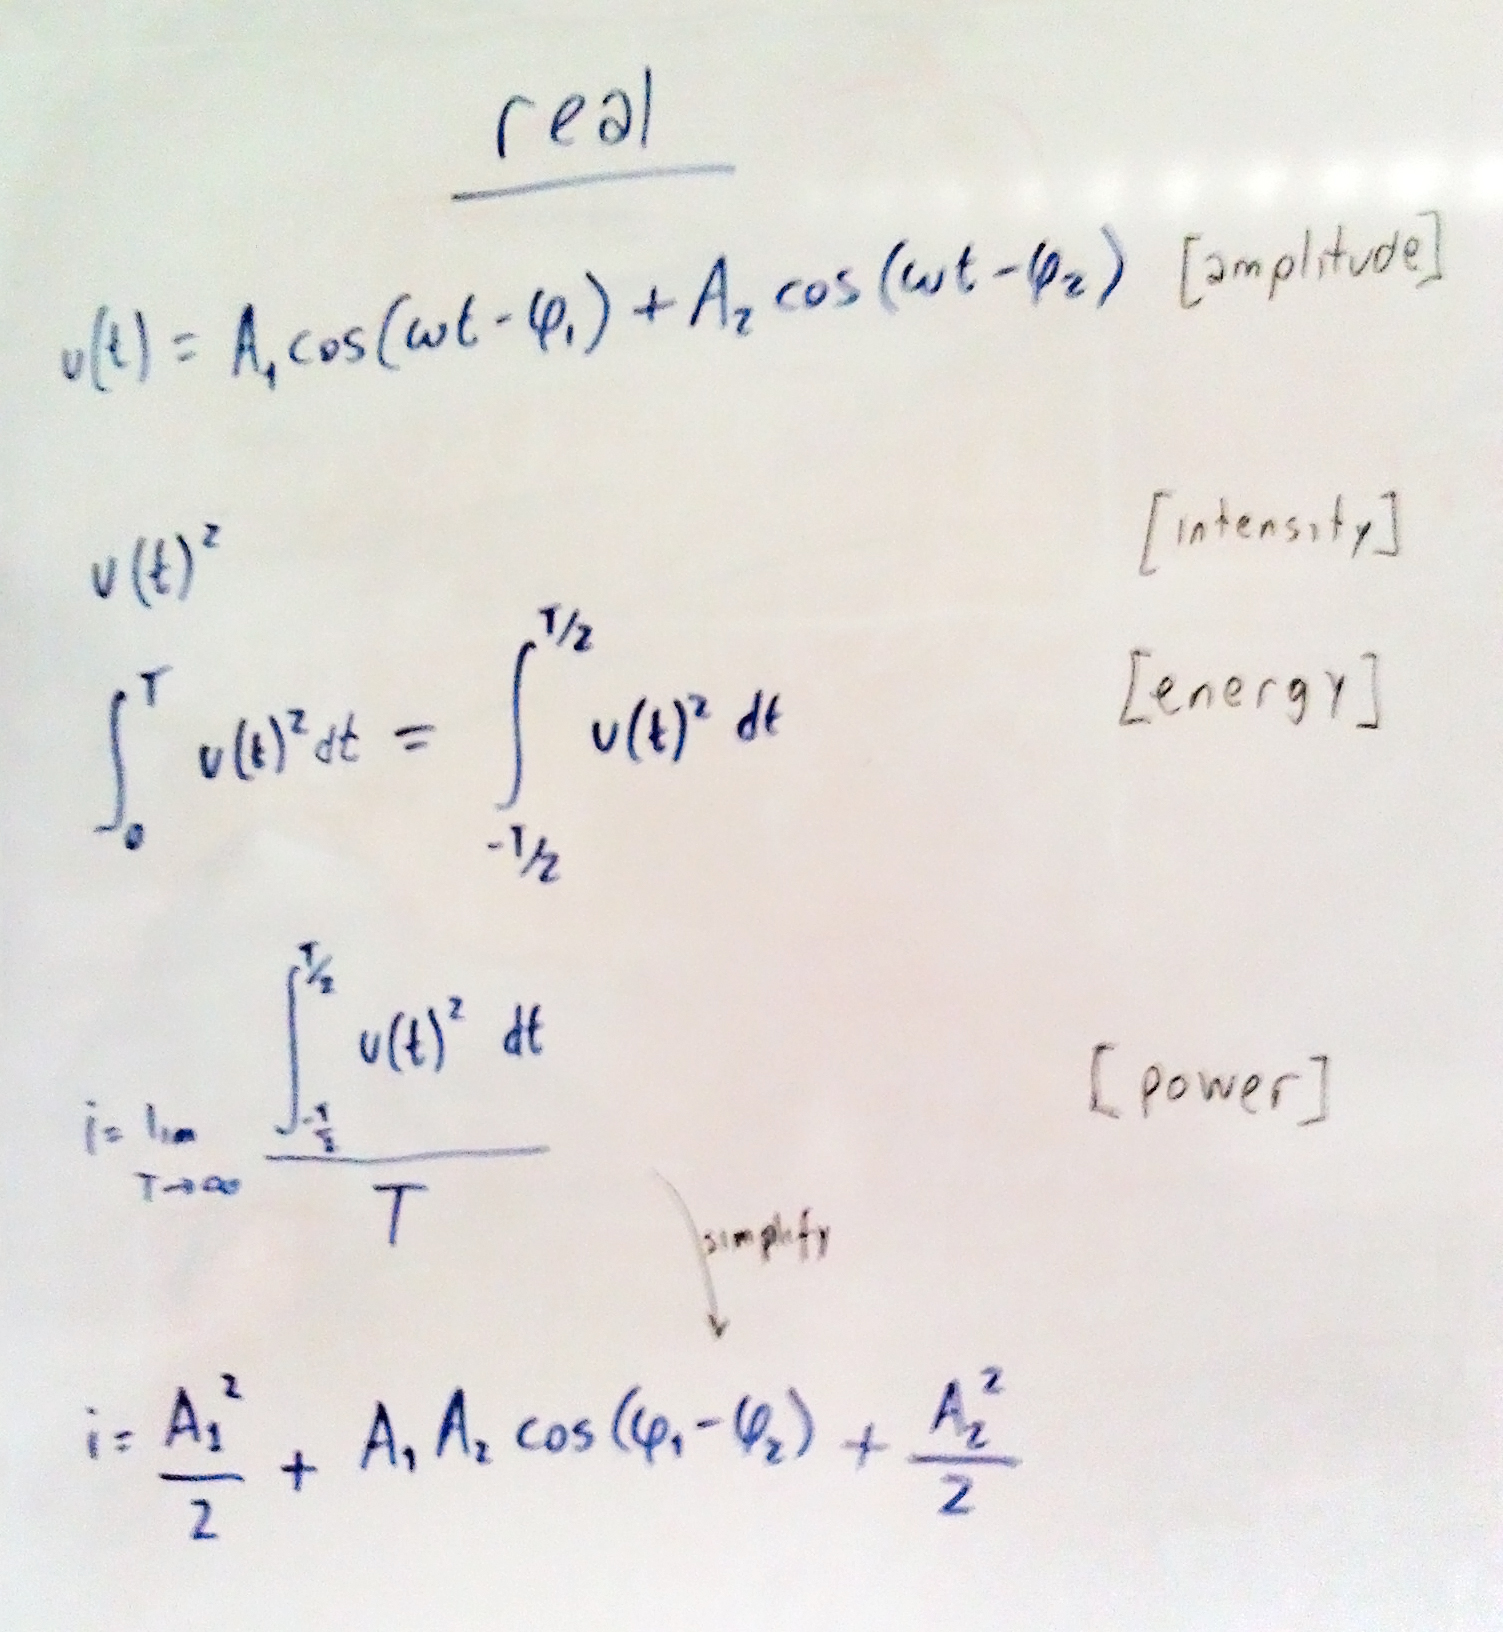 real
v(t) = A₁ cos(ωt - φ₁) + A₂ cos(ωt - φ₂) [amplitude]
v(t)² [intensity]
∫₀ᵀ v(t)² dt = ∫_{-T/2}^{T/2} v(t)² dt [energy]
i = lim_{T→∞} \frac{∫_{-T/2}^{T/2} v(t)² dt}{T} [power]
simplify
i = \frac{A₁²}{2} + A₁ A₂ cos(φ₁ - φ₂) + \frac{A₂²}{2}